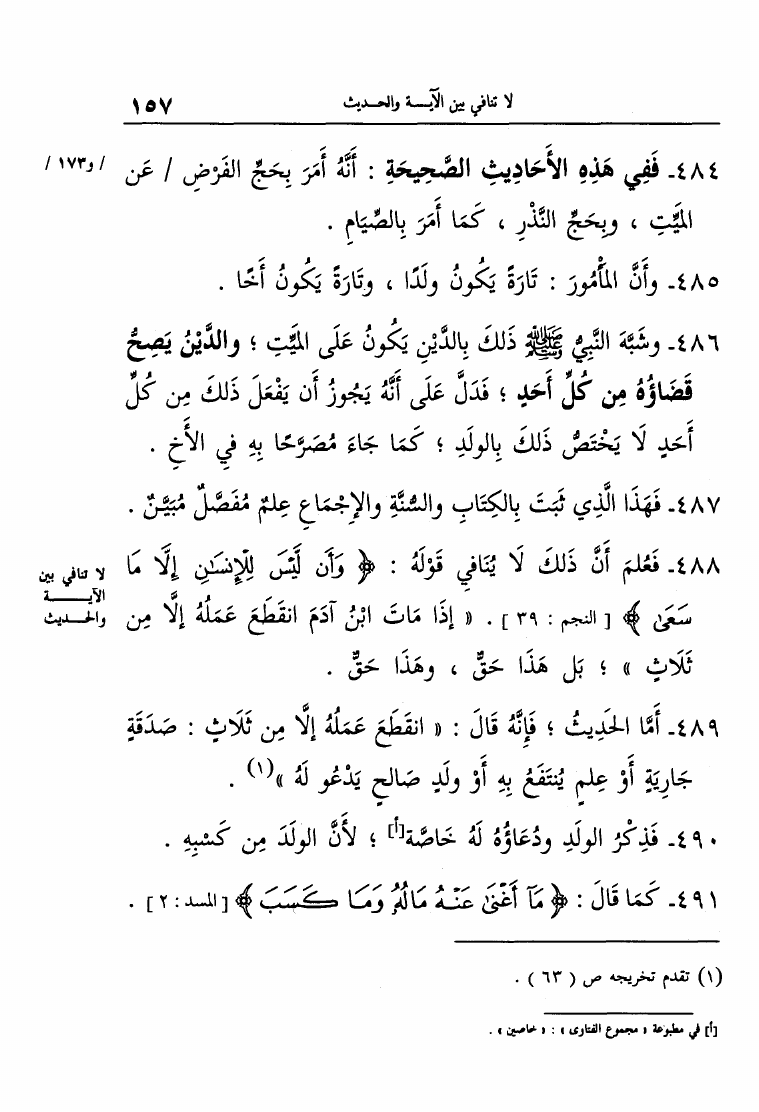 لا تنافي بين الآيـــة والحـديث ١٥٧
٤٨٤ـ فَفِي هَذِهِ الأَحَادِيثِ الصَّحِيحَةِ : أَنَّهُ أَمَرَ بِحَجِّ الفَرْضِ / عَن /و١٧٣/
المَيِّتِ ، وبِحَجِّ النَّذْرِ ، كَمَا أَمَرَ بِالصِّيَامِ .
٤٨٥ـ وأَنَّ المَأْمُورَ : تَارَةً يَكُونُ ولَدًا ، وتَارَةً يَكُونُ أَخًا .
٤٨٦ـ وشَبَّهَ النَّبِيُّ ﷺ ذَلكَ بِالدَّيْنِ يَكُونُ عَلَى المَيِّتِ ؛ والدَّيْنُ يَصِحُّ
قَضَاؤُهُ مِن كُلِّ أَحَدٍ ؛ فَدَلَّ عَلَى أَنَّهُ يَجُوزُ أَن يَفْعَلَ ذَلكَ مِن كُلِّ
أَحَدٍ لَا يَخْتَصُّ ذَلكَ بِالولَدِ ؛ كَمَا جَاءَ مُصَرَّحًا بِهِ فِي الأَخِ .
٤٨٧ـ فَهَذَا الَّذِي ثَبَتَ بِالكِتَابِ والسُّنَّةِ والإِجْمَاعِ عِلمٌ مُفَصَّلٌ مُبَيَّنٌ .
٤٨٨ـ فَعُلمَ أَنَّ ذَلكَ لَا يُنَافِي قَوْلَهُ : ﴿ وَأَن لَّيْسَ لِلْإِنسَـٰنِ إِلَّا مَا
سَعَىٰ ﴾ [ النجم : ٣٩ ] . « إِذَا مَاتَ ابْنُ آدَمَ انقَطَعَ عَمَلُهُ إِلَّا مِن
ثَلَاثٍ » ؛ بَل هَذَا حَقٌّ ، وهَذَا حَقٌّ .
لا تنافي بين
الآيـــــة
والحـــديث
٤٨٩ـ أَمَّا الحَدِيثُ ؛ فَإِنَّهُ قَالَ : « انقَطَعَ عَمَلُهُ إِلَّا مِن ثَلَاثٍ : صَدَقَةٍ
جَارِيَةٍ أَوْ عِلمٍ يُنتَفَعُ بِهِ أَوْ ولَدٍ صَالحٍ يَدْعُو لَهُ »(١) .
٤٩٠ـ فَذِكْرُ الولَدِ ودُعَاؤُهُ لَهُ خَاصَّة[أ] ؛ لأَنَّ الولَدَ مِن كَسْبِهِ .
٤٩١ـ كَمَا قَالَ : ﴿ مَآ أَغْنَىٰ عَنْـهُ مَالُهُۥ وَمَا كَسَبَ ﴾ [ المسد : ٢ ] .
(١) تقدم تخريجه ص ( ٦٣ ) .
[أ] في مطبوعة « مجموع الفتاوى » : « خاصين » .